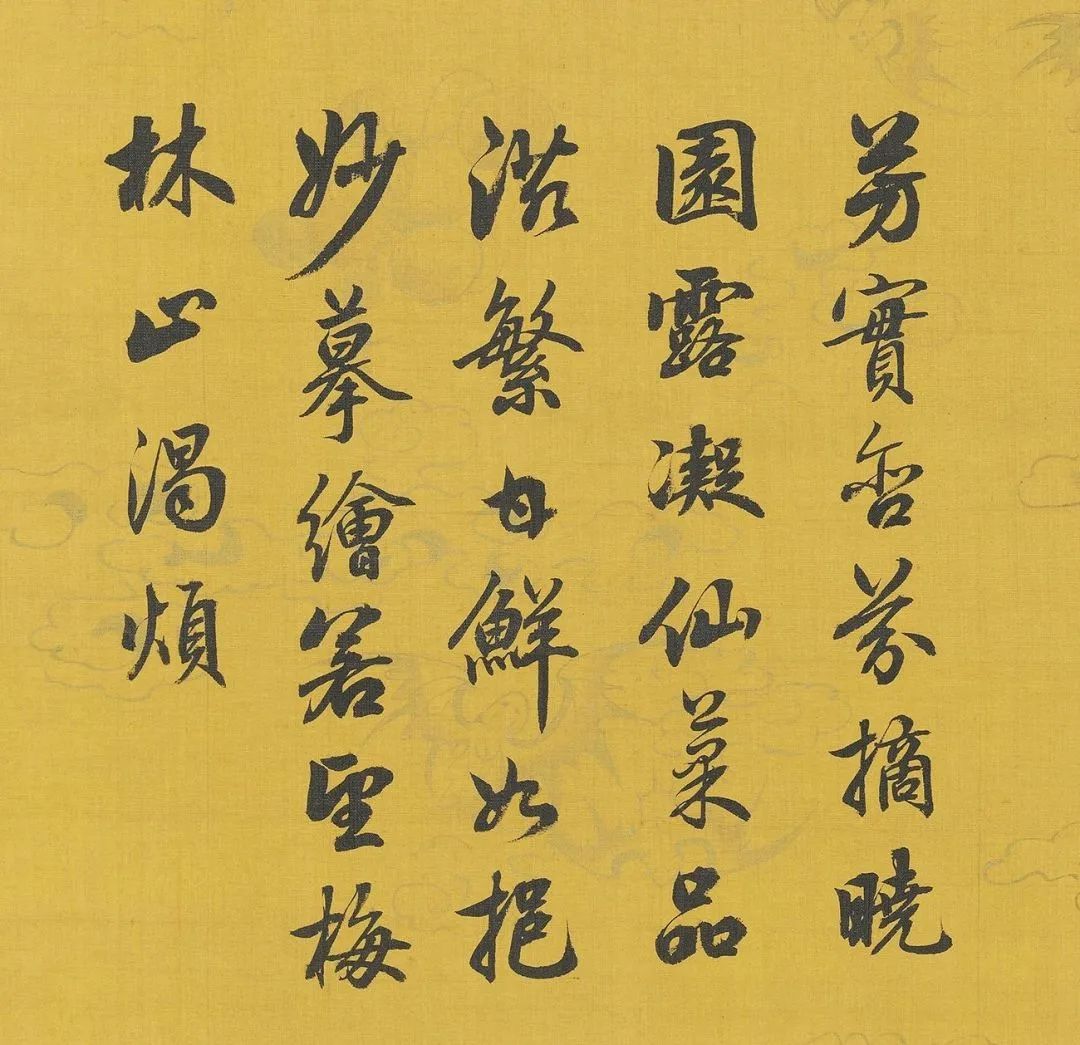 芳實含芬摘曉
園露凝仙菓品
滋繁甘鮮如挹
妙摹繪若望梅
林止渴煩